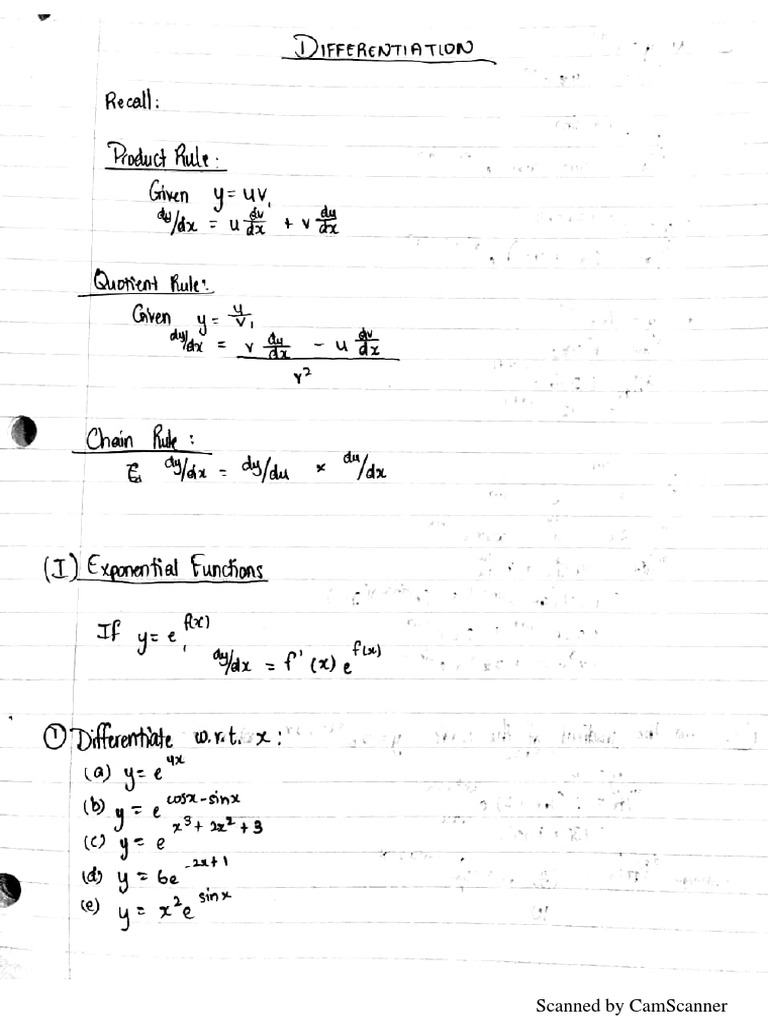 DIFFERENTIATION
Recall:
Product Rule:
Given y = uv,
dy/dx = u dv/dx + v du/dx
Quotient Rule:
Given y = u/v,
dy/dx = v du/dx - u dv/dx
v²
Chain Rule:
dy/dx = dy/du × du/dx
(I) Exponential Functions
If y = e^f(x),
dy/dx = f'(x) e^f(x)
① Differentiate w.r.t. x:
(a) y = e^4x
(b) y = e^cosx-sinx
(c) y = e^x³+2x²+3
(d) y = 6e^-2x+1
(e) y = x²e^sinx
Scanned by CamScanner